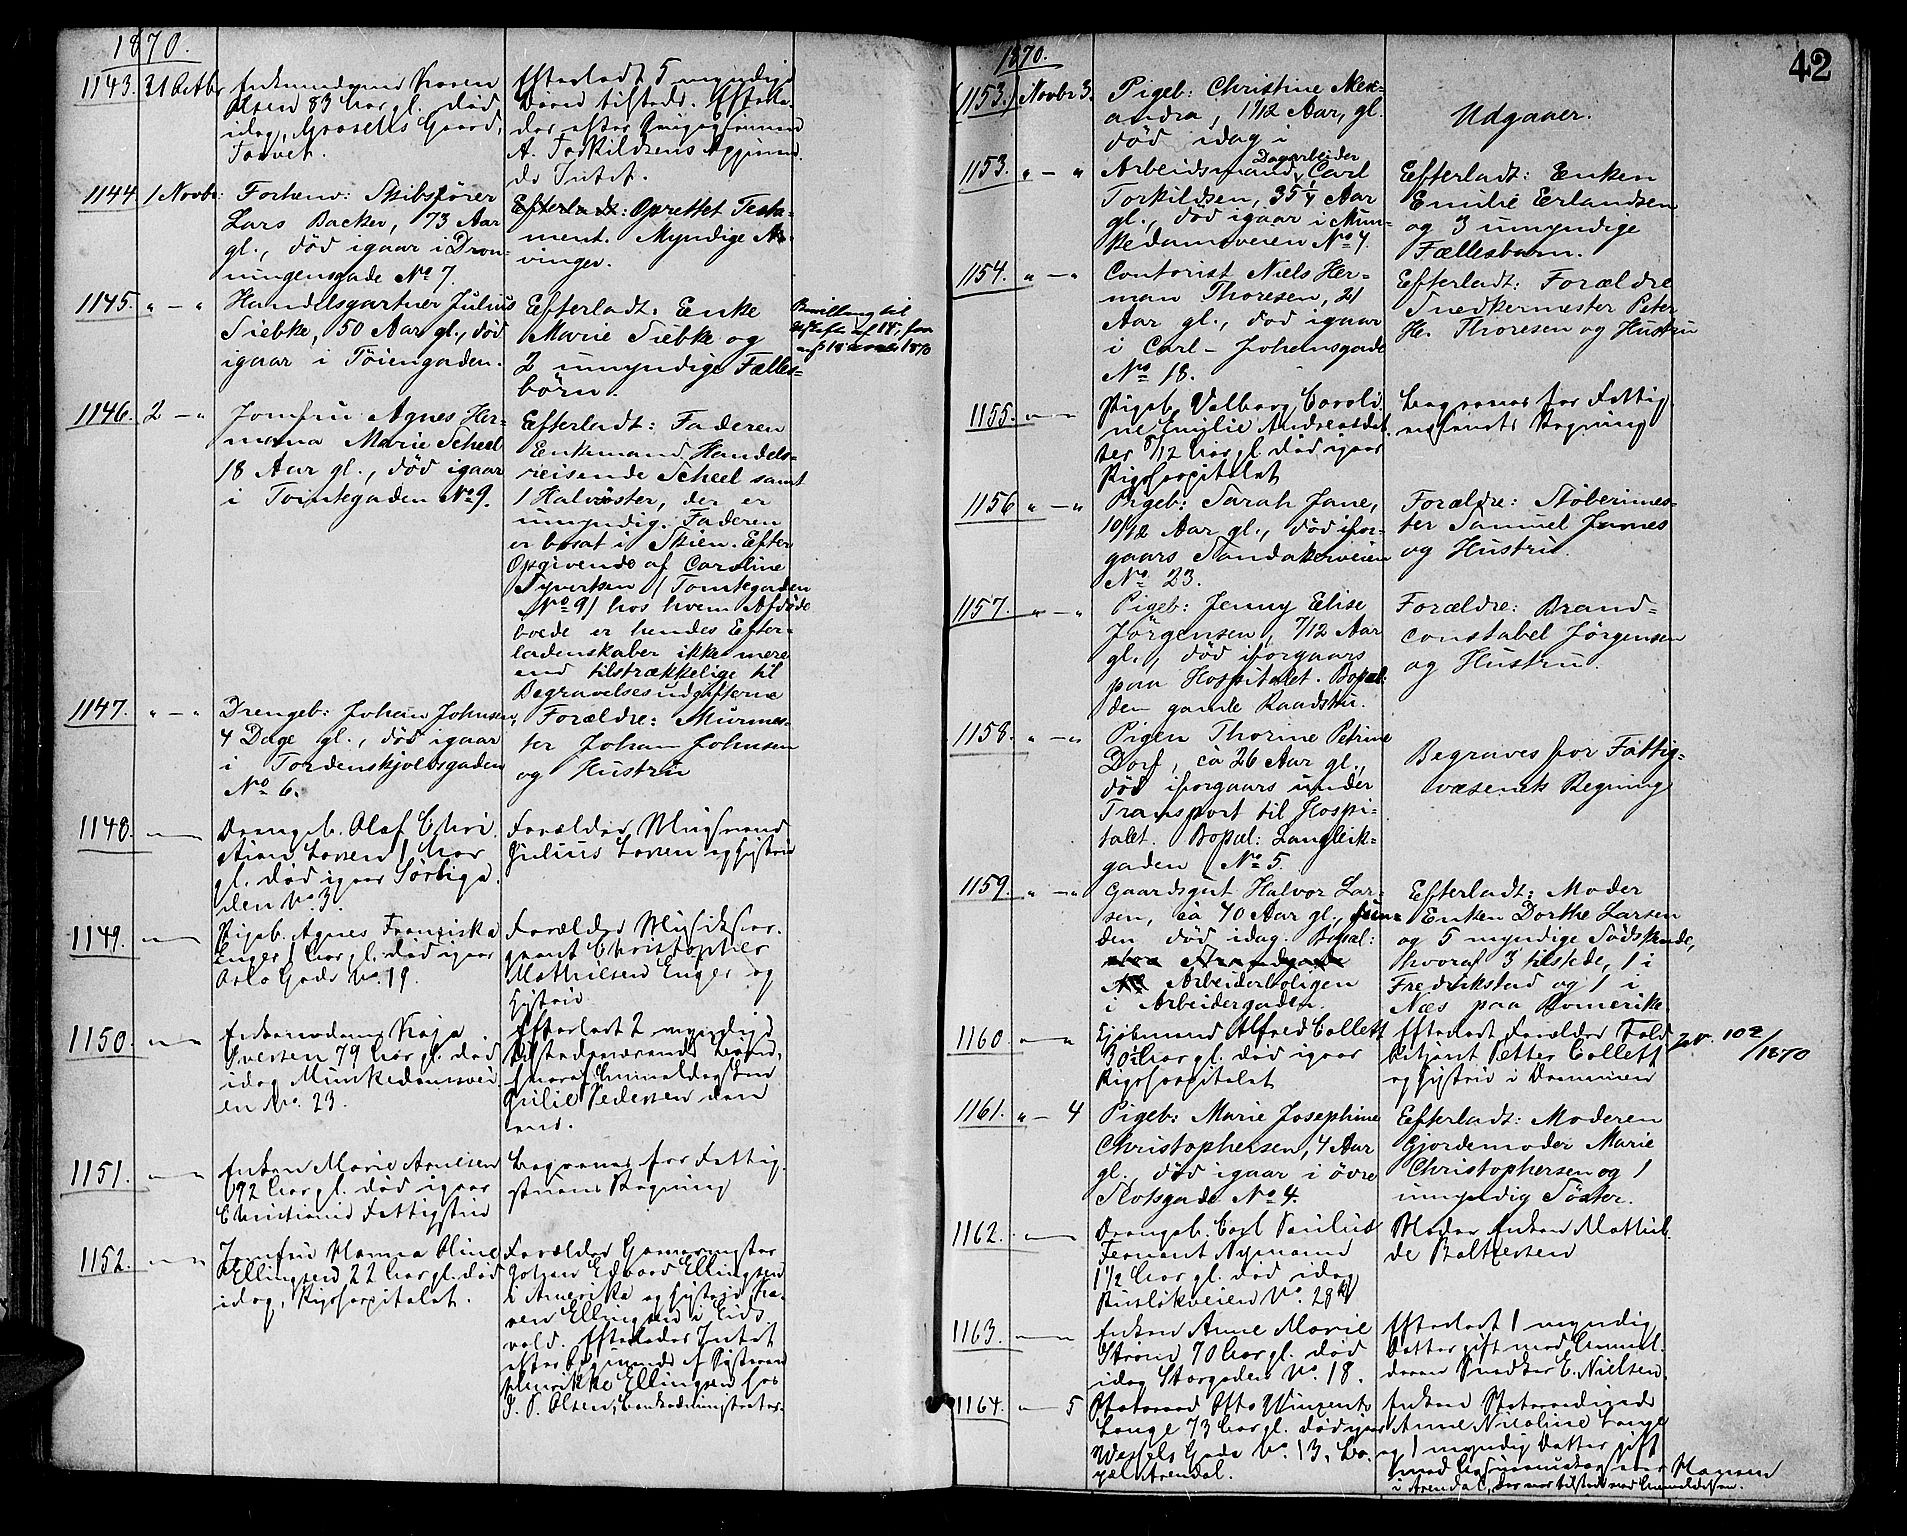 1870.
1143. 31 Octbr
Olsen 83 Aar gl. død
idag, Grosetts Gaard,
Torvet.
Efterladt 5 myndige
Børn tilstede.
A. Torkildsens Opgivende
1144. 1 Novbr: Forhenv: Skibsfører
Lars Backer, 73 Aar
gl., død igaar i Dron-
ningensgade No 7.
Efterladt: Oprettet Testa-
ment. Myndige Ar-
vinger.
1145. " - " Handelsgartner Julius
Siebke, 50 Aar gl., død
igaar i Töiengaden.
Efterladt: Enke
Marie Siebke og
2 umyndige Fælles-
börn.
Bevilling til
1870
1146. 2 - " Jomfru Agnes Her-
mena Marie Scheel
18 Aar gl., død igaar
i Tomtegaden No 9.
Efterladt: Faderen
Enkemand, Handels-
reisende Scheel samt
1 Halvsöster, der er
umyndig. Faderen
er bosat i Skien. Efter
Opgivende af Caroline
Syvertsen (Tomtegaden
No 9) hos hvem Afdöde
boede er hendes Efter-
ladenskaber ikke mere
end tilstrækkelige til
Begravelsesudgifterne
1147. " - " Drengeb: Johan Johnsen,
4 Dage gl., död igaar
i Tordenskjoldsgaden
No 6.
Forældre: Murmes-
ter Johan Johnsen
og Hustru
1148. Drengeb. Olaf Chri
stian Larsen 1 Aar
gl. død igaar Sörliga
den No 3.
Forældre
Julius Larsen og Hustru
1149. Pigeb. Agnes Franziska
Enger 1 Aar gl. død igaar
Oslo Gade No. 19.
Forældre Musikser-
gant Christopher
Mathiesen Enger og
Hustru
1150.
Iversen 79 Aar gl. død
idag Munkedamsvei
en No. 23.
Efterladt 2 myndige
tilstedeværende Börn,
hvoraf Anmeldersken
Julie Pedersen den
ene.
1151. Enken Marie Arnesen
92 Aar gl. død igaar
Christiania Fattighus
Begraves for Fattig
Regning
1152. Jomfru Hanna Oline
Ellingsen 22 Aar gl. død
idag, Rigshospitalet.
Forældre
Johan Edvard Ellingsen
i Amerika og Hustru Ka-
ren Ellingsen i Eids
vold. Efterlader Intet
efter Opgivende af Søsteren
Henrikke Ellingsen hos
Olsen, Bankadministrator.
42
1870.
(1153.) Novbr 3. Pigeb: Christine Alex-
andra, 1 1/12 Aar, gl.
död idag i
Udgaaer.
1153. " - " Arbeidsmand, Dagarbeider Carl
Torkildsen, 35 1/4 Aar
gl., død igaar i Mun-
kedamsveien No 4.
Efterladt: Enken
Emilie Erlandsen
og 3 umyndige
Fællesbarn.
1154. " - " Contorist Niels Her-
man Thoresen, 21
Aar gl., död igaar
i Carl-Johansgade
No 18.
Efterladt: Forældre
Snedkermester Peter
He. Thoresen og Hustru
1155. Pigeb. Valborg Caroli
ne Emilie Andreasdat
ter 8/12 Aar gl. død igaar
Rigshospitalet
Begraves for Fattig
væsenets Regning
1156 " - " Pigeb: Sarah Jane,
10/12 Aar gl., död ifor-
gaars Sandakerveien
No 23.
Forældre: Stöberimes-
ter Samuel James
og Hustru.
1157. " - " Pigeb: Jenny Elise
Jörgensen, 7/12 Aar
gl., död iforgaars
paa Hospitalet. Bopæl:
den gamle Raadstu.
Forældre: Brand-
constabel Jørgensen
og Hustru.
1158. " - " Pigen Thorine Petrine
Dorf, ca 26 Aar gl.,
död iforgaars under
Transport til Hospi-
talet. Bopæl: Langleik-
gaden No 5.
Begraves for Fattig-
væsenets Regning
1159. " - " Gaardsgut Halvor Lar-
sen, ca 40 Aar gl., fun-
den död idag. Bopæl:
Arbeiderboligen
i Arbeidergaden.
Efterladt: Moder
Enken Dorthe Larsen
og 5 myndige Södskende,
hvoraf 3 tilstede, 1 i
Fredrikstad og 1 i
Næs paa Romerike.
1160 Kjøbmand Alfred Collett
30 Aar gl. død igaar
Rigshospitalet
Efterladt Forældre Told
betjent Petter Collett
og Hustru i Drammen
102/1870
1161. " - 4 Pigeb: Marie Josephine
Christophersen, 4 Aar
gl., död igaar i övre
Slotsgade No 4.
Efterladt: Moderen
Gjordemoder Marie
Christophersen og 1
umyndig Söster.
1162. Drengeb. Carl Paulus
Fernant Nymand
1 1/2 Aar gl. død idag
Ruseløkveien No. 28
Moder Enken Mathil
de Baltzersen
1163. Enken Anne Marie
Strøm 70 Aar gl. død
idag Storgaden No. 18.
Efterladt 1 myndig
Datter gift med Anmel-
deren Snedker E. Nielsen.
1164. 5 Statsraad Otto Vincent
Lange 73 Aar gl. død igaar
Wessels Gade No. 13, Bo
pæl Arendal.
Enken Statsraadinde
Anne Nicoline Lange
og 1 myndig Datter gift
med Hansen
i Arendal, der var tilstede ved Anmeldelsen.